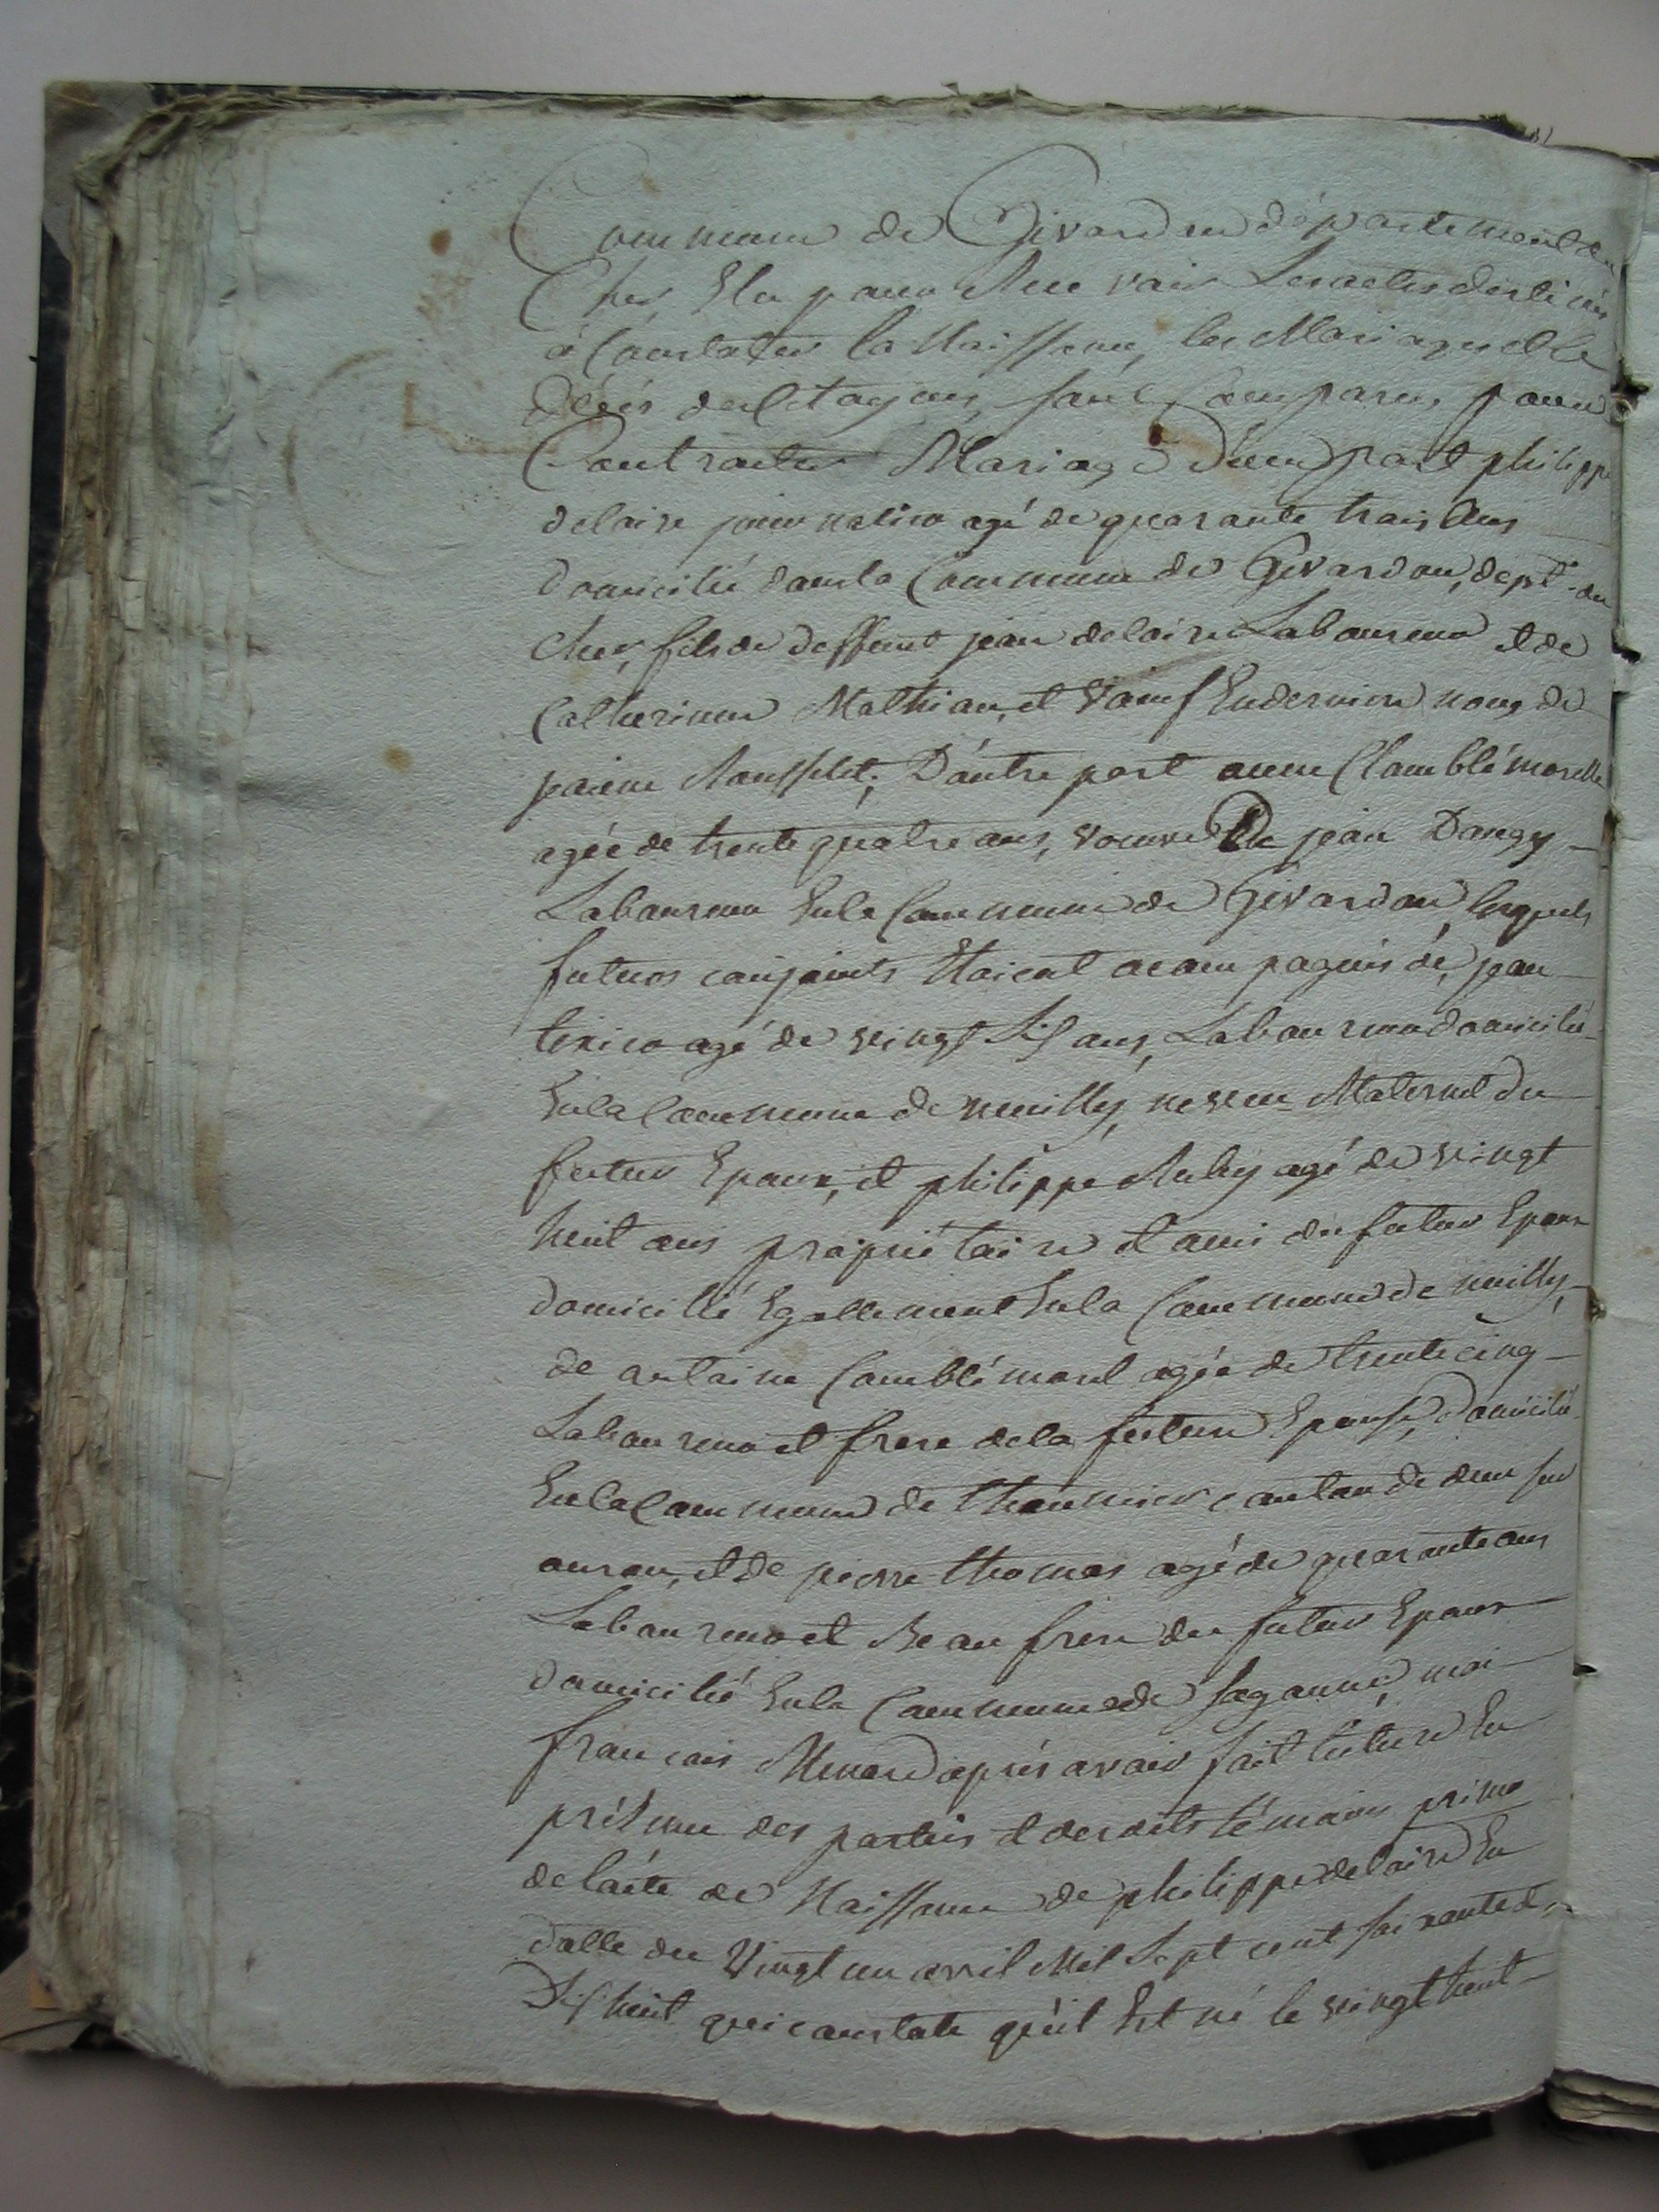 Commune de Givardon département du
Cher, Elu pour Recevoir Les actes destinés
à Constater la Naissance, les Mariages et le
décés des Citoyens, sont Comparus pour
Contracter Mariage D'une part philippe
delaire journalier agé de quarante trois Ans
domicilié dans la Commune de Givardon, dept. du
Cher, fils de deffunt jean delaire Laboureur et de
Catherinne Mathian, et Vœuf En derniere nons de
D'autre part anne Comblémorelle
agée de trente quatre ans, vœuve De jean Dangy
Laboureur En la Commune de Givardon, lesquels
futurs conjoints Etoient acompagnés de, jean
agé de vingt Six ans, Laboureur domicilié
En la Commune de neuilly, neveu Maternel du
futur Epoux, et philippe Auby agé de vingt
huit ans propriétaire et ami du futur Epoux
domicilié Egallement En la Commune de neuilly,
de antoine Comblémorel agée de trente cinq
Laboureur et frere de la future Epouse, domicilié
En la Commune de thoumier canton de dun sur
auron, et de pierre thomas agé de quarante ans
Laboureur et Beau frere du futur Epoux
domicilié En la Commune de Sagonne, moi
francois Menard après avoir fait lecture En
présence des parties et desdits témoins primo
de l'acte de Naissance de philippe delaire En
datte du Vingt un avril Mil Sept cent soixante et
Dishuit qui constate qu'il Est né le vingt huit